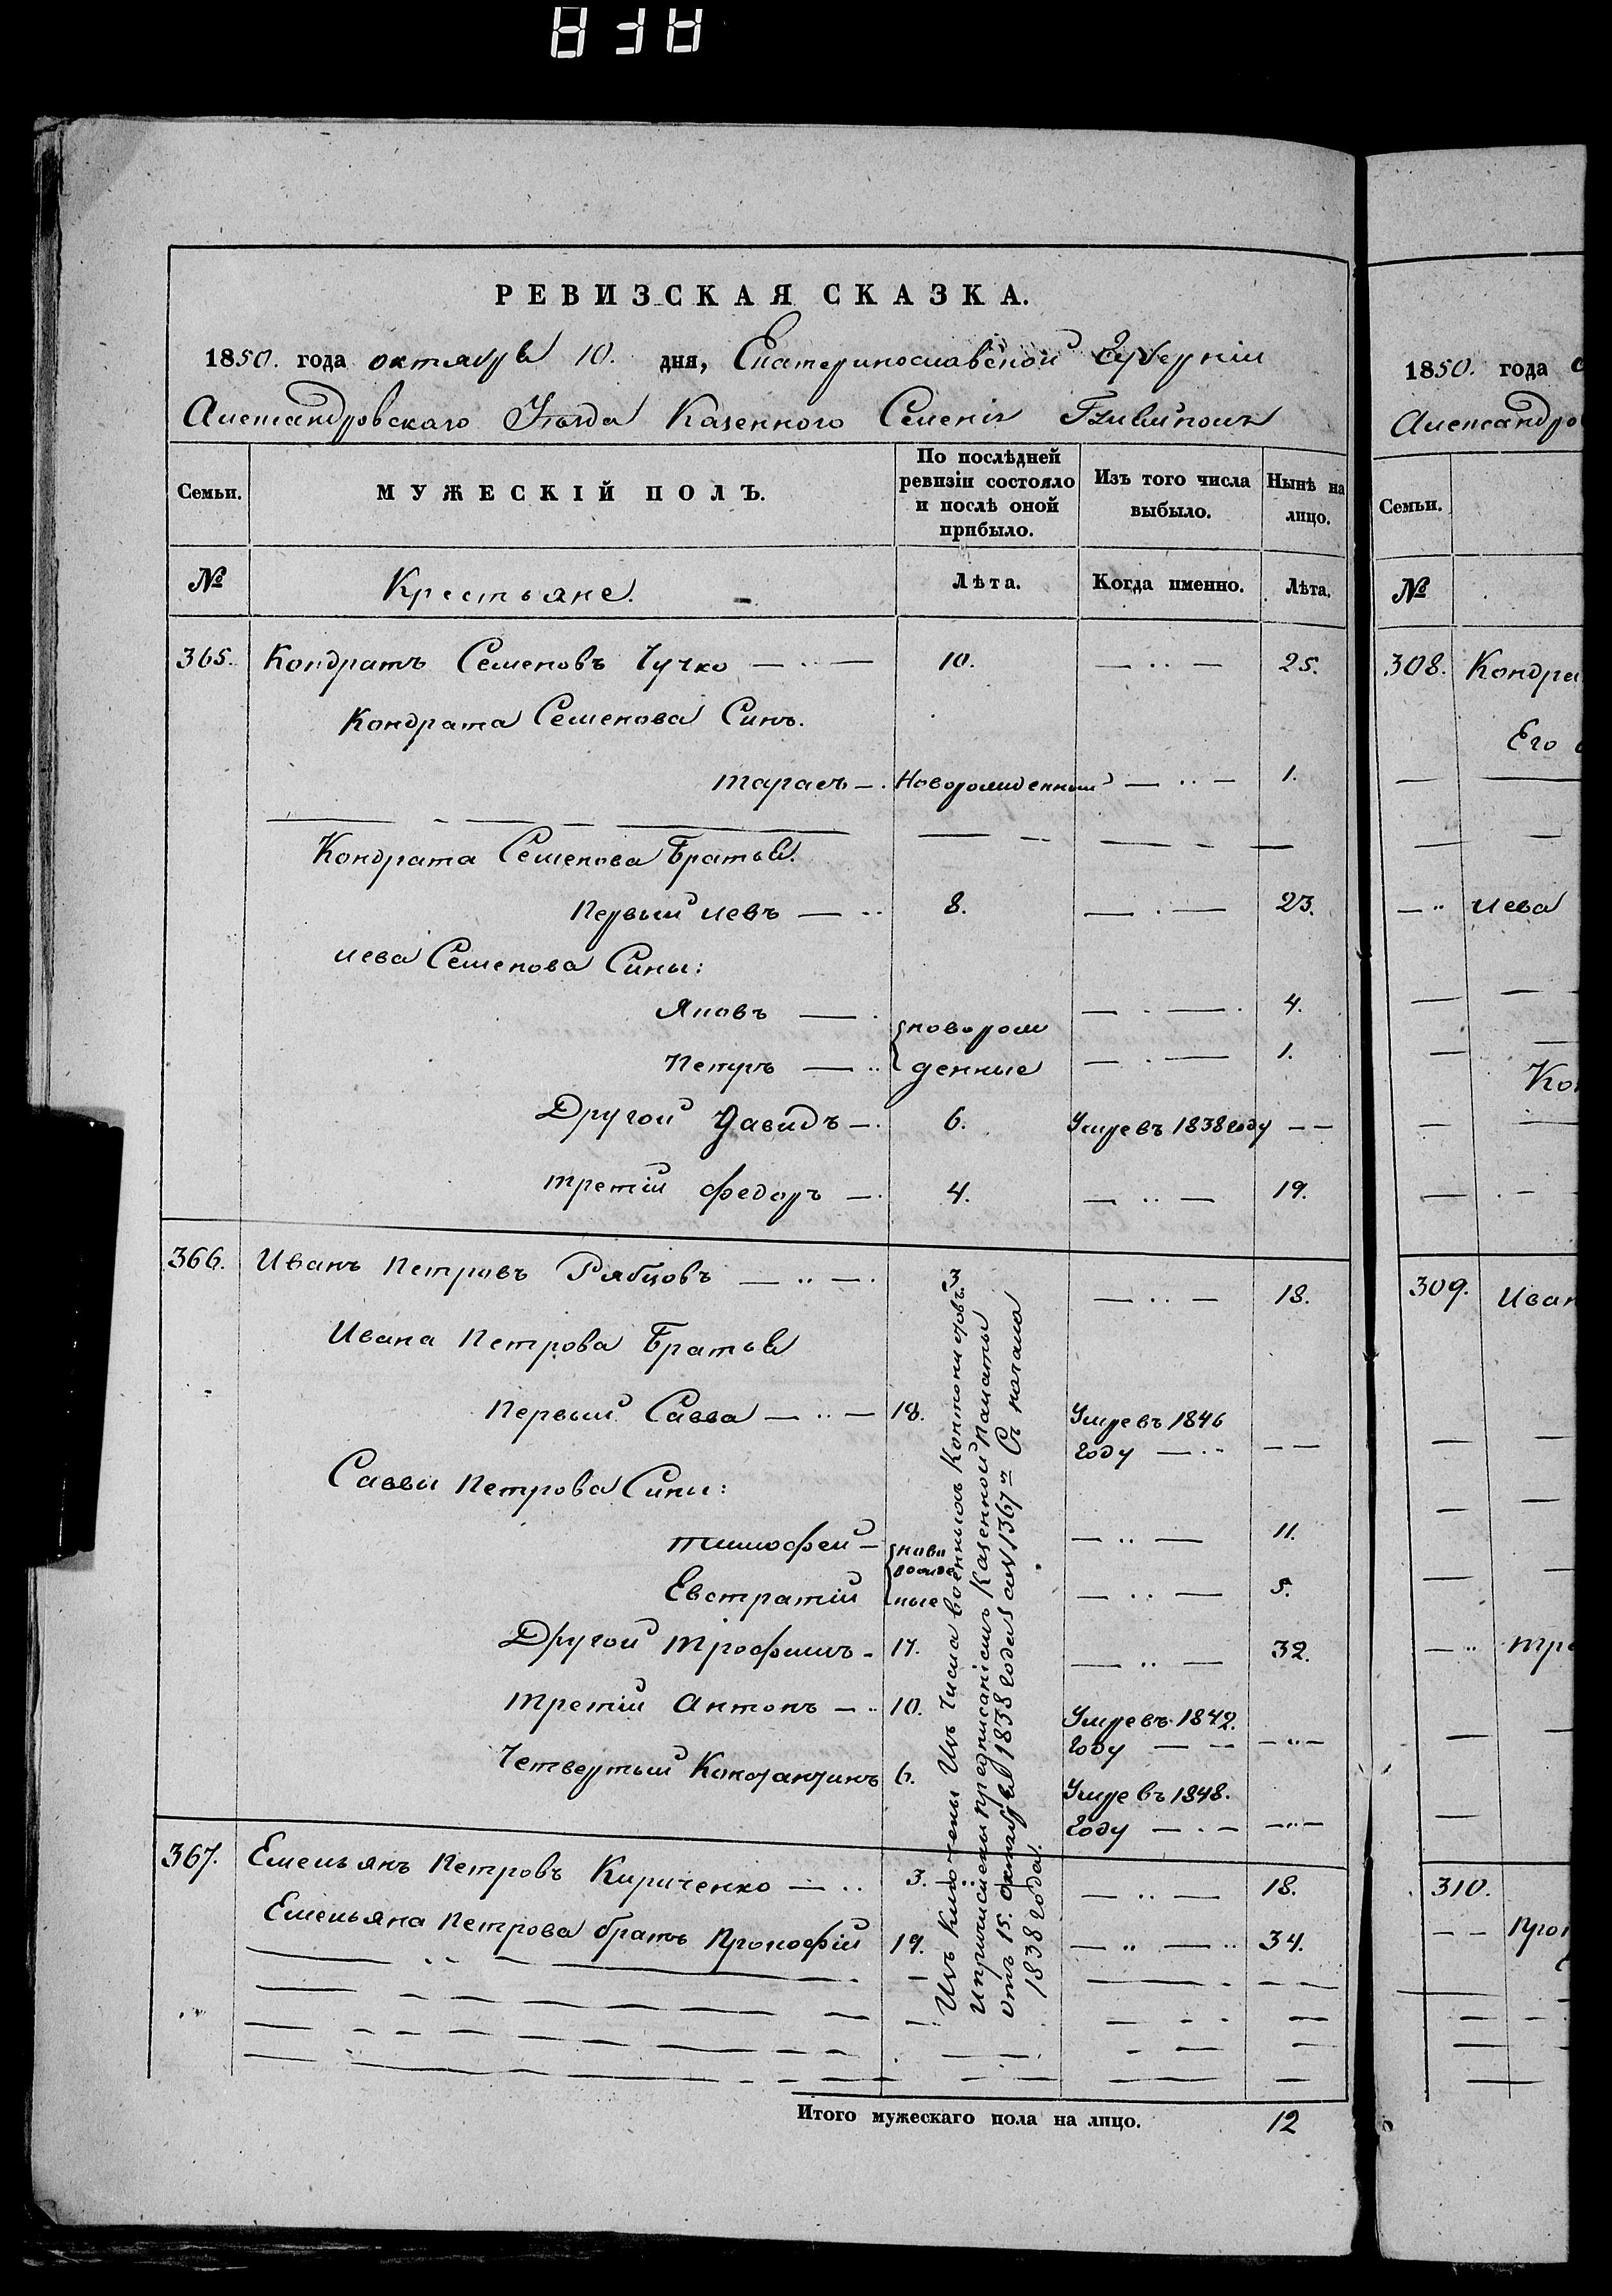 РЕВИЗСКАЯ СКАЗКА.
1850. года октября 10. дня, Екатеринославской Губерніи
Александровскаго Уѣзда Казенного Селенія
Семьи. МУЖЕСКІЙ ПОЛЪ. По послѣдней ревизіи состояло и послѣ оной прибыло. Изъ того числа выбыло. Нынѣ на лицо.
№ Крестьяне. Лѣта. Когда именно. Лѣта.
365. Кондратъ Семеновъ Чучко — .. — 10. — .. — 25.
Кондрата Семенова Синъ.
тарасъ — . Новорожденный — .. — 1.
Кондрата Семенова Братья.
Первый левъ — .. 8. — . — 23.
лева Семенова Сины:
Яковъ — . новорож — . — . 4.
Петръ — .. денные — . — 1.
Другой Давидъ — . 6. Умре въ 1838 году — —
третій федоръ — . 4. — .. — 19.
366. Иванъ Петровъ Рябцовъ — .. — . 3 — .. — 18.
Ивана Петрова Братья
Первый Савва — .. — 18. Умре въ 1846
году — . - — —
Саввы Петрова Сины:
тимофей — ново — .. — 11.
Евстратій ные — .. — 5.
Другой трофимъ - 17. — .. — 32.
третій антонъ — .. 10. Умре въ 1842.
году — — — .. —
Четвертый Константинъ 6. Умре въ 1848.
году — . — — .. —
367. Емельянъ Петровъ Кириченко — .. 3. — .. — 18.
Емельяна Петрова братъ Прокофій 19. — .. — .. 34.
Изъ Числа военныхъ Контонистовъ.
и причислены предписаніемъ Казенной Палаты
отъ 15. октября 1838 года за № 1367м Съ начала
1838 года.
Итого мужескаго пола на лицо. 12
1850. года
Александро
Семьи.
№
308. Кондра
Его
— .. лева
309. Иван
— ..
310.
— —